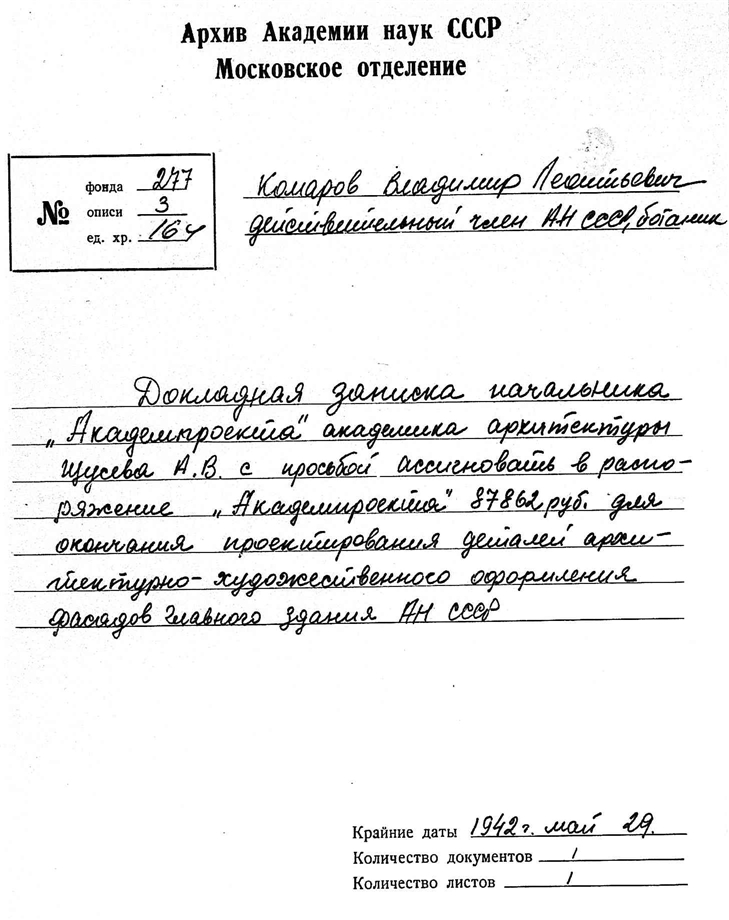 Архив Академии наук СССР
Московское отделение
№
фонда 277
описи 3
ед. хр. 164
Комаров Владимир Леонтьевич
действительный член АН СССР, ботаник
Докладная записка начальника
„Академпроекта" академика архитектуры
Щусева А.В. с просьбой ассигновать в распо-
ряжение „Академпроекта" 87862 руб. для
окончания проектирования деталей архи-
тектурно-художественного оформления
фасадов Главного здания АН СССР
Крайние даты 1942 г. май 29.
Количество документов 1
Количество листов 1